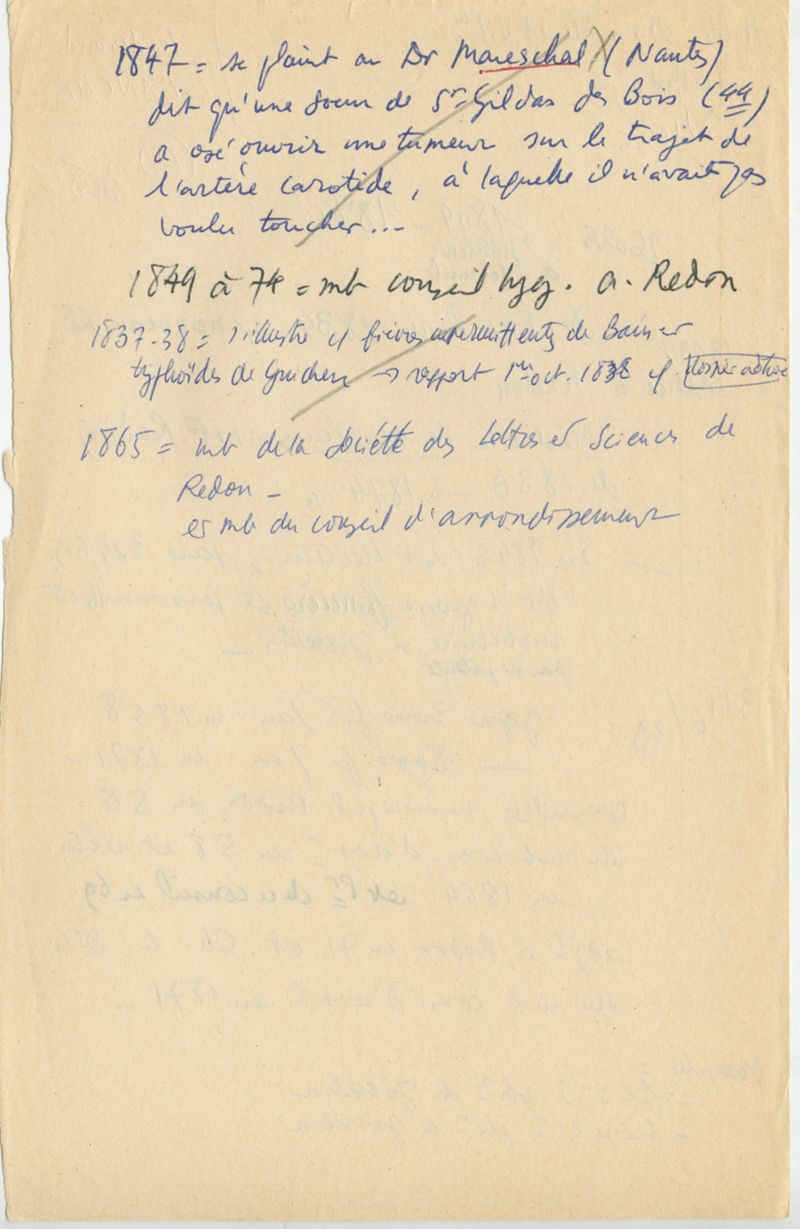 1847 = se plaint au Dr Mareschal (Nantes)
dit qu'une soeur de St Gildas des Bois (44)
a osé ouvrir une tumeur sur le trajet de
l'artère carotide, à laquelle il n'avait pas
voulu toucher...
1849 à 74 = mb conseil hyg. a. Redon
1837-38 = s'illustre cf fièvres intermittentes de Bain et
typhoïdes de Guichen → rapport 1er oct. 1838 cf. dossier
1865 = mb de la Société des Lettres et Sciences de
Redon -
et mb du conseil d'arrondissement